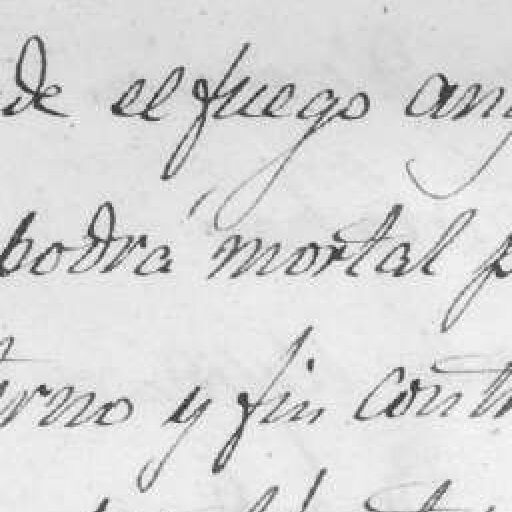 de el fuego ang
podrá mortal p
erno y fin contr